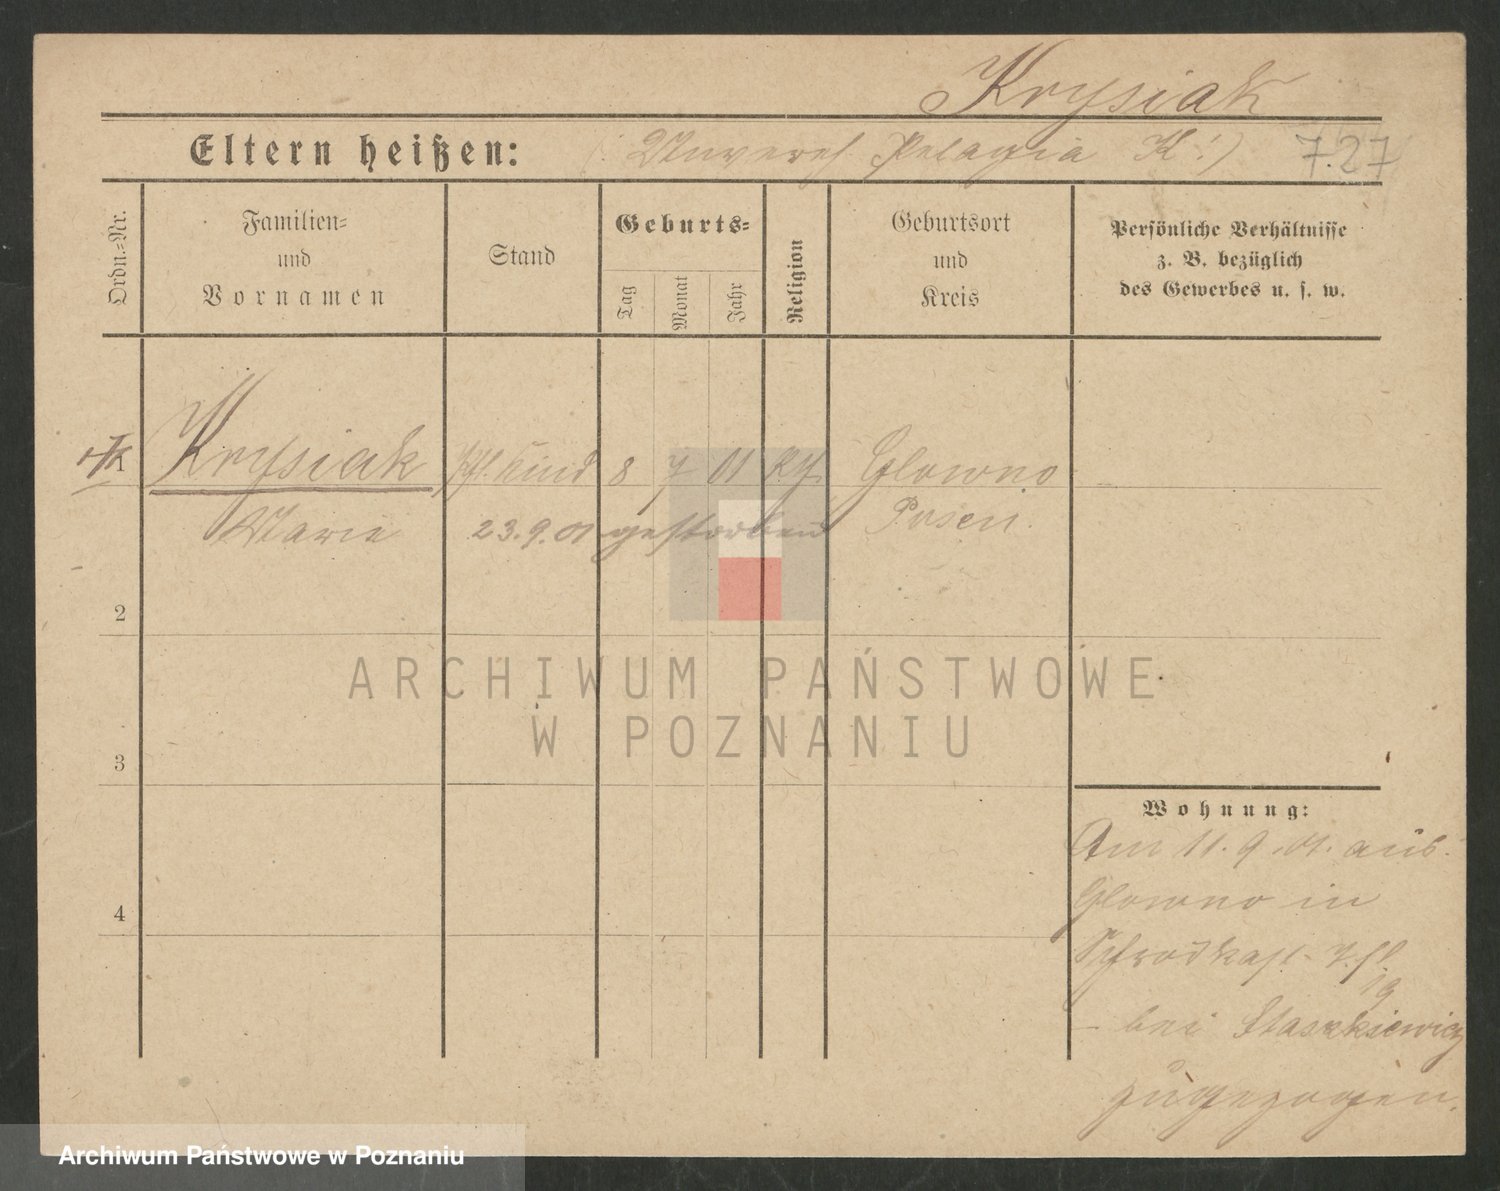 Krysiak
Eltern heißen: (Unvereh. Pelagia K.)
7.27
Ordn.=Nr.
Familien=
und
Vornamen
Stand
Geburts=
Tag
Monat
Jahr
Religion
Geburtsort
und
Kreis
Persönliche Verhältnisse
z. B. bezüglich
des Gewerbes u. s. w.
1 Krysiak Pfl. Kind 8 7 01 Glowno
Marie 23.9.01 gestorben Posen.
2
3
4
Wohnung:
Am 11.9.01. aus
Glowno in
bei Staszkiewicz
zugezogen.
ARCHIWUM PAŃSTWOWE
W POZNANIU
Archiwum Państwowe w Poznaniu